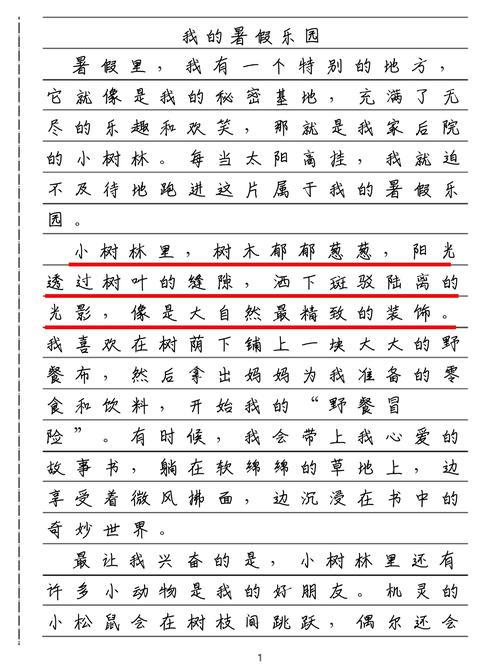 我的暑假乐园
暑假里，我有一个特别的地方，
它就像是我的秘密基地，充满了无
尽的乐趣和欢笑，那就是我家后院
的小树林。每当太阳高挂，我就迫
不及待地跑进这片属于我的暑假乐
园。
小树林里，树木郁郁葱葱，阳光
透过树叶的缝隙，洒下斑驳陆离的
光影，像是大自然最精致的装饰。
我喜欢在树荫下铺上一块大大的野
餐布，然后拿出妈妈为我准备的零
食和饮料，开始我的“野餐冒
险”。有时候，我会带上我心爱的
故事书，躺在软绵绵的草地上，边
享受着微风拂面，边沉浸在书中的
奇妙世界。
最让我兴奋的是，小树林里还有
许多小动物是我的好朋友。机灵的
小松鼠会在树枝间跳跃，偶尔还会
1